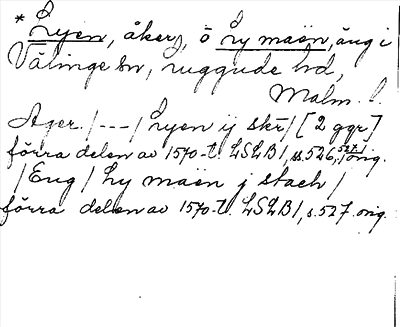 * Lyen, åker, ö Ly maën, äng i
Välinge sn, Luggude hd,
Malm. l.
Ager /---/ Lyen ij skr/ [2 ggr]
förra delen av 1570-t. LSLB1, ss. 526, 527/ orig.
/Eng/ Ly maën j stach/
förra delen av 1570-t. LSLB1, s. 527. orig.